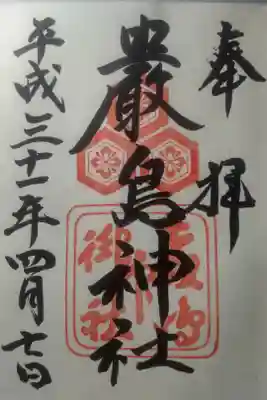 奉拝
嚴島神社
平成三十一年四月七日